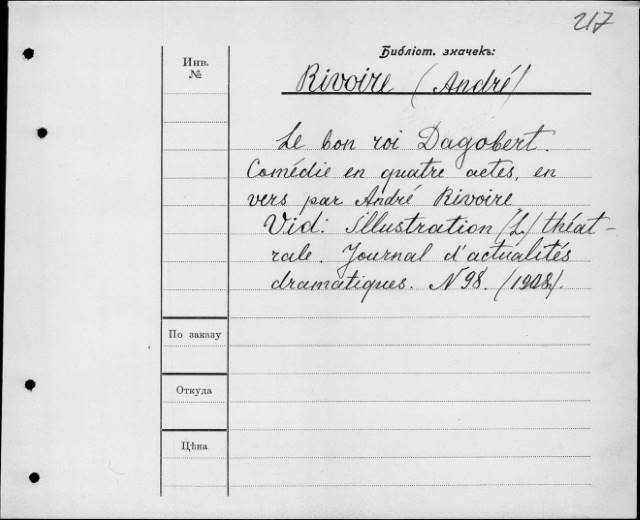 217
Библіот. значекъ:
Инв.
№
Rivoire (André)
Le bon roi Dagobert.
Comédie en quatre actes, en
vers par André Rivoire
Vid: Illustration (L) théat-
rale. Journal d'actualités
dramatiques. N 98. (1908).
По заказу
Откуда
Цѣна